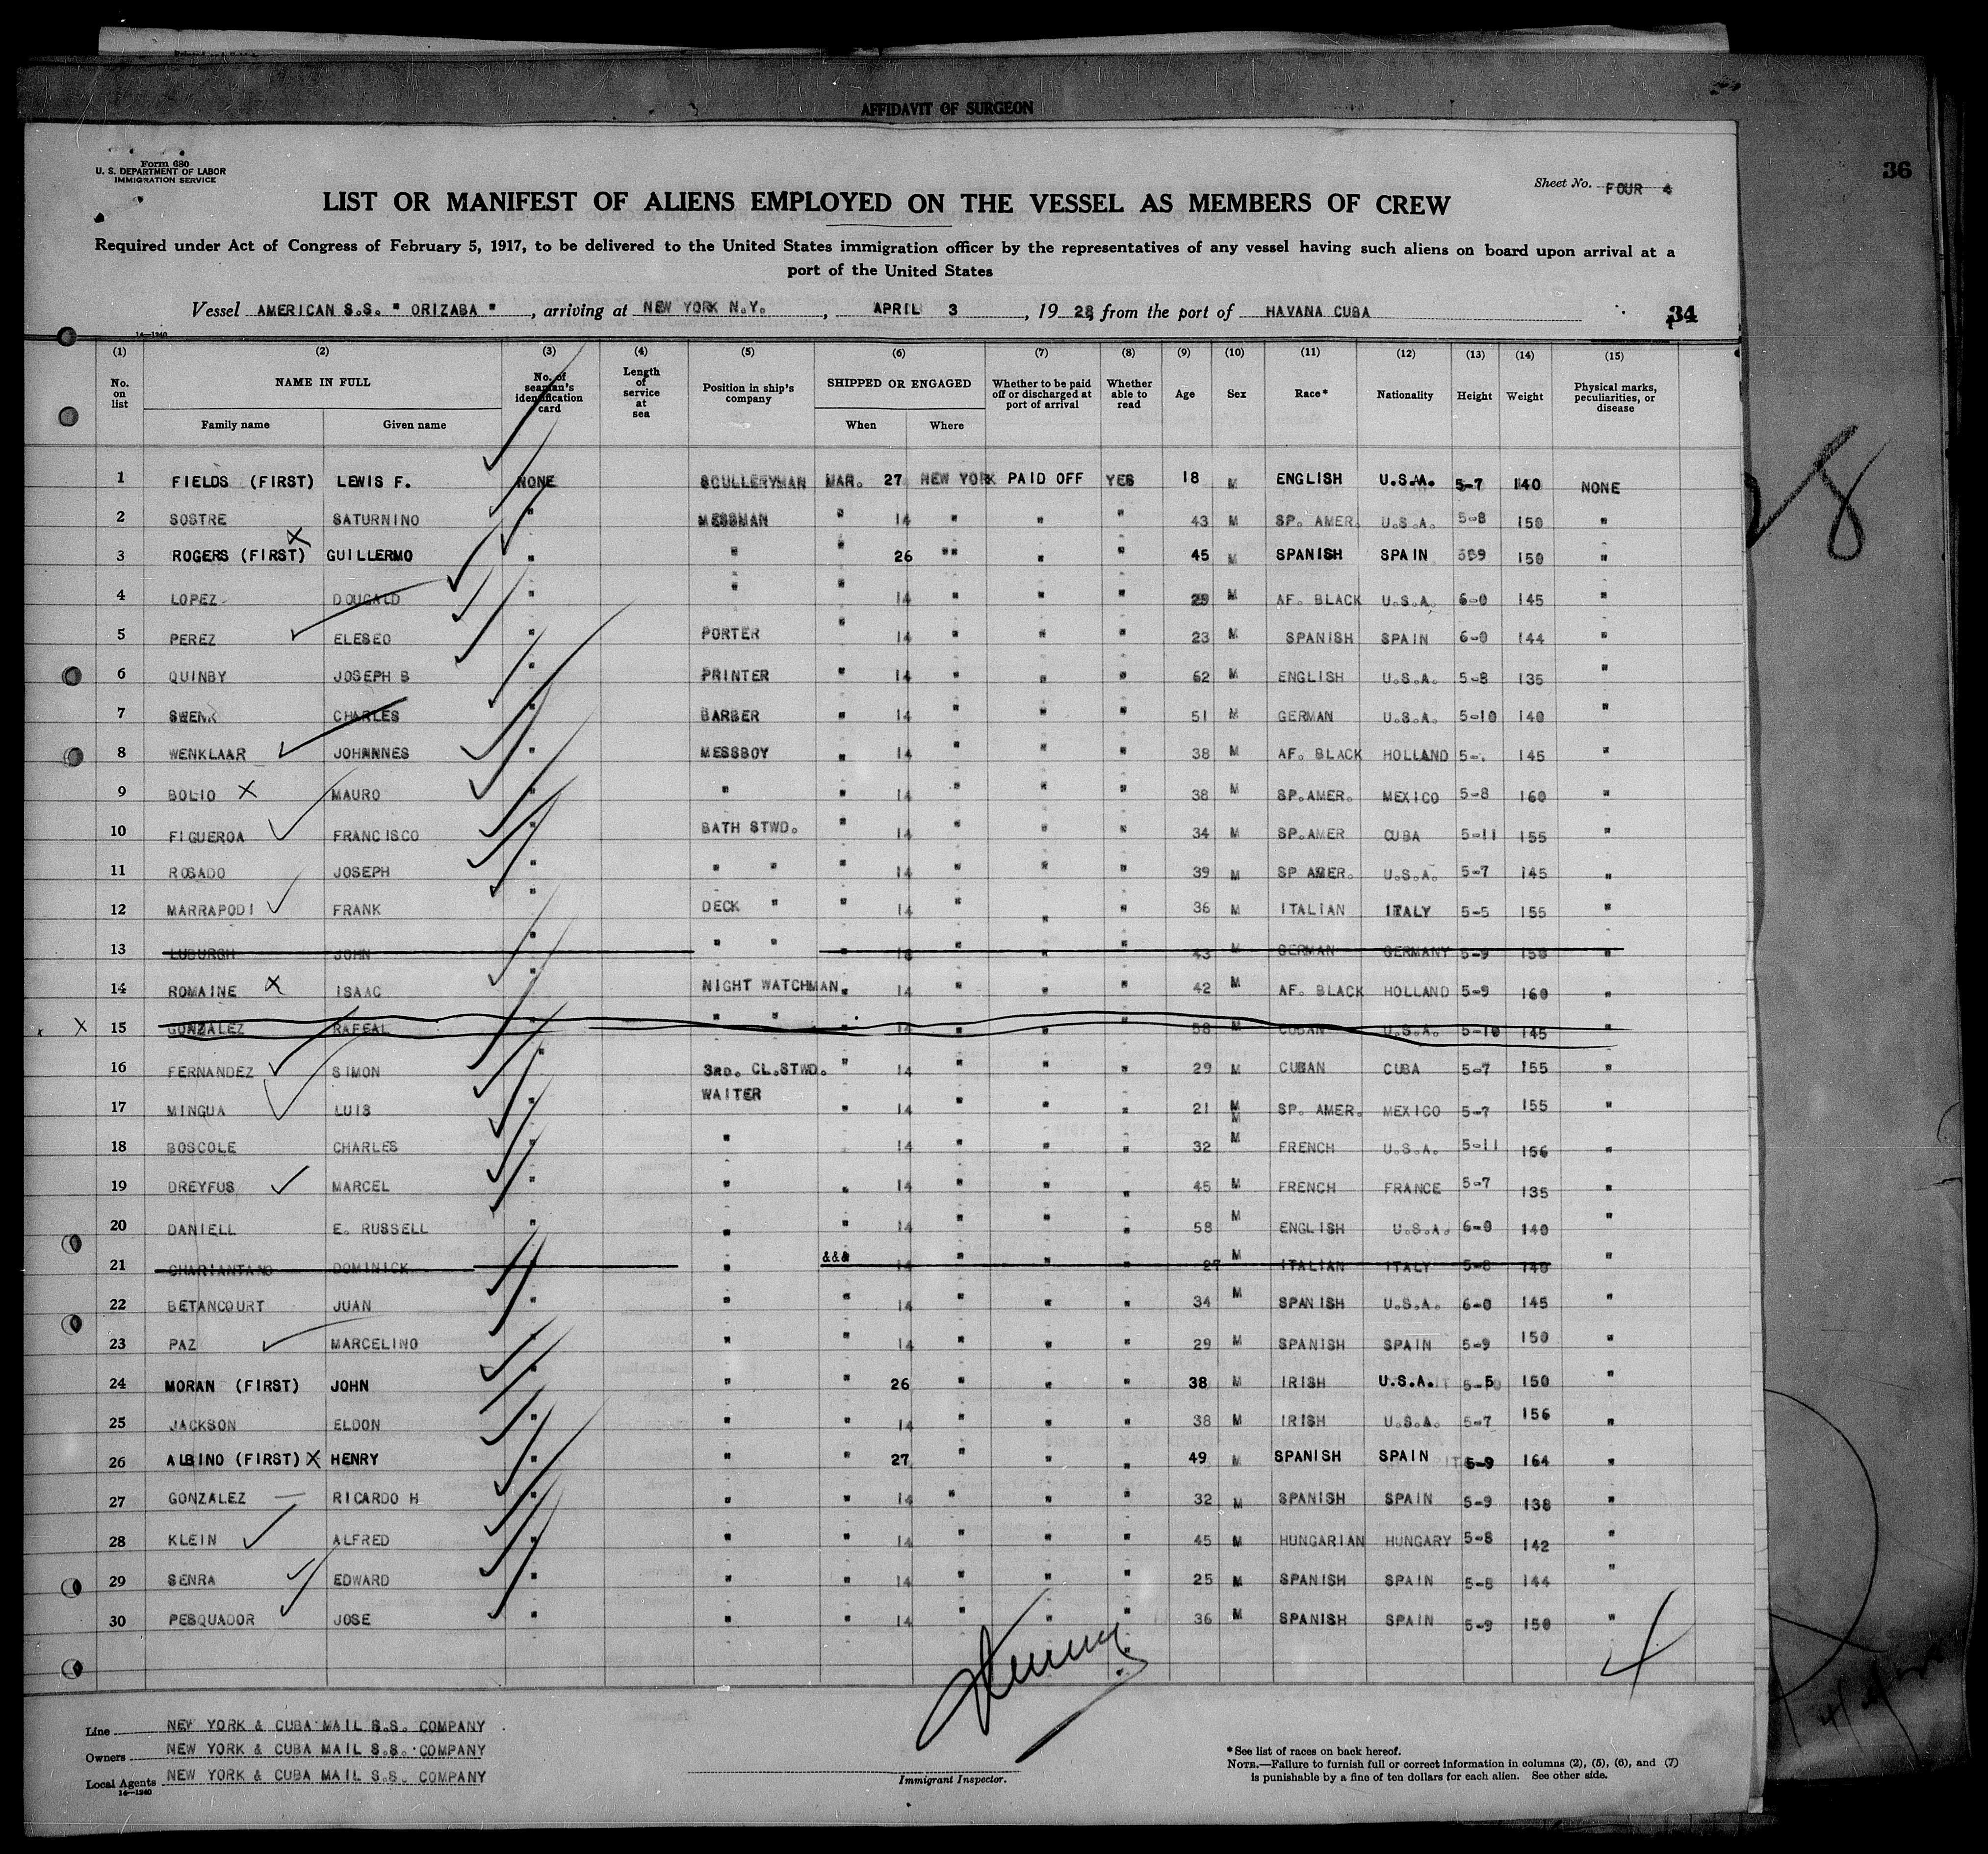 AFFIDAVIT OF SURGEON
36
Form 680
U. S. DEPARTMENT OF LABOR
IMMIGRATION SERVICE
Sheet No. FOUR 4
LIST OR MANIFEST OF ALIENS EMPLOYED ON THE VESSEL AS MEMBERS OF CREW
Required under Act of Congress of February 5, 1917, to be delivered to the United States immigration officer by the representatives of any vessel having such aliens on board upon arrival at a
port of the United States
Vessel AMERICAN S.S. " ORIZABA ", arriving at NEW YORK N.Y., APRIL 3, 1928, from the port of HAVANA CUBA
34
14—1240
(1) (2) (3) (4) (5) (6) (7) (8) (9) (10) (11) (12) (13) (14) (15)
No. on list NAME IN FULL No. of seaman's identification card Length of service at sea Position in ship's company SHIPPED OR ENGAGED Whether to be paid off or discharged at port of arrival Whether able to read Age Sex Race* Nationality Height Weight Physical marks, peculiarities, or disease
Family name Given name When Where
1 FIELDS (FIRST) LEWIS F. NONE SCULLERYMAN MAR. 27 NEW YORK PAID OFF YES 18 M ENGLISH U.S.A. 5-7 140 NONE
2 SOSTRE SATURNINO " MESSMAN " 14 " " " 43 M SP. AMER. U.S.A. 5-8 150 "
3 ROGERS (FIRST) X GUILLERMO " " " 26 "" " " 45 M SPANISH SPAIN 150 "
4 LOPEZ DOUGALD " " " 14 " " " 29 M AF. BLACK U.S.A. 6-0 145 "
5 PEREZ ELESEO " PORTER " 14 " " " 23 M SPANISH SPAIN 6-0 144 "
6 QUINBY JOSEPH B " PRINTER " 14 " " " 62 M ENGLISH U.S.A. 5-8 135 "
7 SWENK CHARLES " BARBER " 14 " " " 51 M GERMAN U.S.A. 5-10 140 "
8 WENKLAAR JOHANNES " MESSBOY " 14 " " " 38 M AF. BLACK HOLLAND 5-. 145 "
9 BOLIO X MAURO " " " 14 " " " 38 M SP.AMER. MEXICO 5-8 160 "
10 FIGUEROA FRANCISCO " BATH STWD. " 14 " " " 34 M SP.AMER CUBA 5-11 155 "
11 ROSADO JOSEPH " " " " 14 " " " 39 M SP AMER. U.S.A. 5-7 145 "
12 MARRAPODI FRANK " DECK " " 14 " " " 36 M ITALIAN ITALY 5-5 155 "
13 LUBURGH JOHN " " " " 14 " " " 43 M GERMAN GERMANY 5-9 150 "
14 ROMAINE X ISAAC " NIGHT WATCHMAN " 14 " " " 42 M AF. BLACK HOLLAND 5-9 160 "
X 15 GONZALEZ RAFEAL " " " 14 " " " 58 M CUBAN U.S.A. 5-10 145 "
16 FERNANDEZ SIMON " 3RD. CL.STWD. " 14 " " " 29 M CUBAN CUBA 5-7 155 "
17 MINGUA LUIS " WAITER " 14 " " " 21 M M SP. AMER. MEXICO 5-7 155 "
18 BOSCOLE CHARLES " " " 14 " " " 32 M FRENCH U.S.A. 5-11 156 "
19 DREYFUS MARCEL " " " 14 " " " 45 M FRENCH FRANCE 5-7 135 "
20 DANIELL E. RUSSELL " " " 14 " " " 58 M ENGLISH U.S.A. 6-0 140 "
21 CHARIANTANO DOMINICK " &&& 14 " " " 27 M ITALIAN ITALY 5-8 140 "
22 BETANCOURT JUAN " " " 14 " " " 34 M SPANISH U.S.A. 6-0 145 "
23 PAZ MARCELINO " " " 14 " " " 29 M SPANISH SPAIN 5-9 150 "
24 MORAN (FIRST) JOHN " " " 26 " " " 38 M IRISH U.S.A. 5-5 150 "
25 JACKSON ELDON " " " 14 " " " 38 M IRISH U.S.A. 5-7 156 "
26 ALBINO (FIRST) X HENRY " " " 27 " " " 49 M SPANISH SPAIN 5-9 164 "
27 GONZALEZ RICARDO H " " " 14 " " " 32 M SPANISH SPAIN 5-9 138 "
28 KLEIN ALFRED " " " 14 " " " 45 M HUNGARIAN HUNGARY 5-8 142 "
29 SENRA EDWARD " " " 14 " " " 25 M SPANISH SPAIN 5-8 144 "
30 PESQUADOR JOSE " " " 14 " " " 36 M SPANISH SPAIN 5-9 150 "
Line NEW YORK & CUBA MAIL S.S. COMPANY
Owners NEW YORK & CUBA MAIL S.S. COMPANY
Local Agents NEW YORK & CUBA MAIL S.S. COMPANY
14—1240
Immigrant Inspector.
* See list of races on back hereof.
NOTE.—Failure to furnish full or correct information in columns (2), (5), (6), and (7)
is punishable by a fine of ten dollars for each alien. See other side.